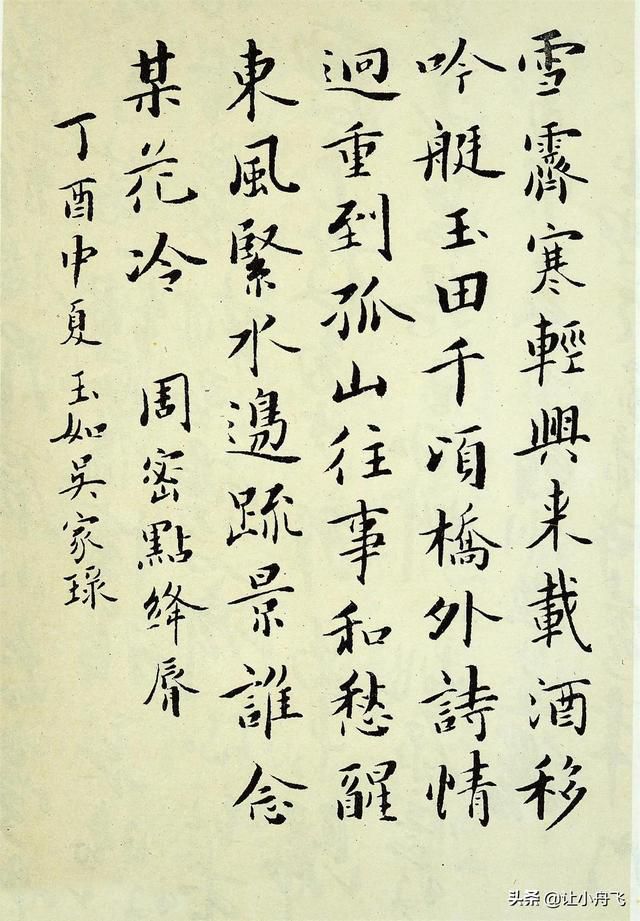 雪霽寒輕興来載酒移
吟艇玉田千頃橋外詩情
迥重到孤山往事和愁醒
東風緊水邊疏景誰念
某花冷 周密點絳脣
丁酉中夏玉如吳家琭
头条 @让小舟飞